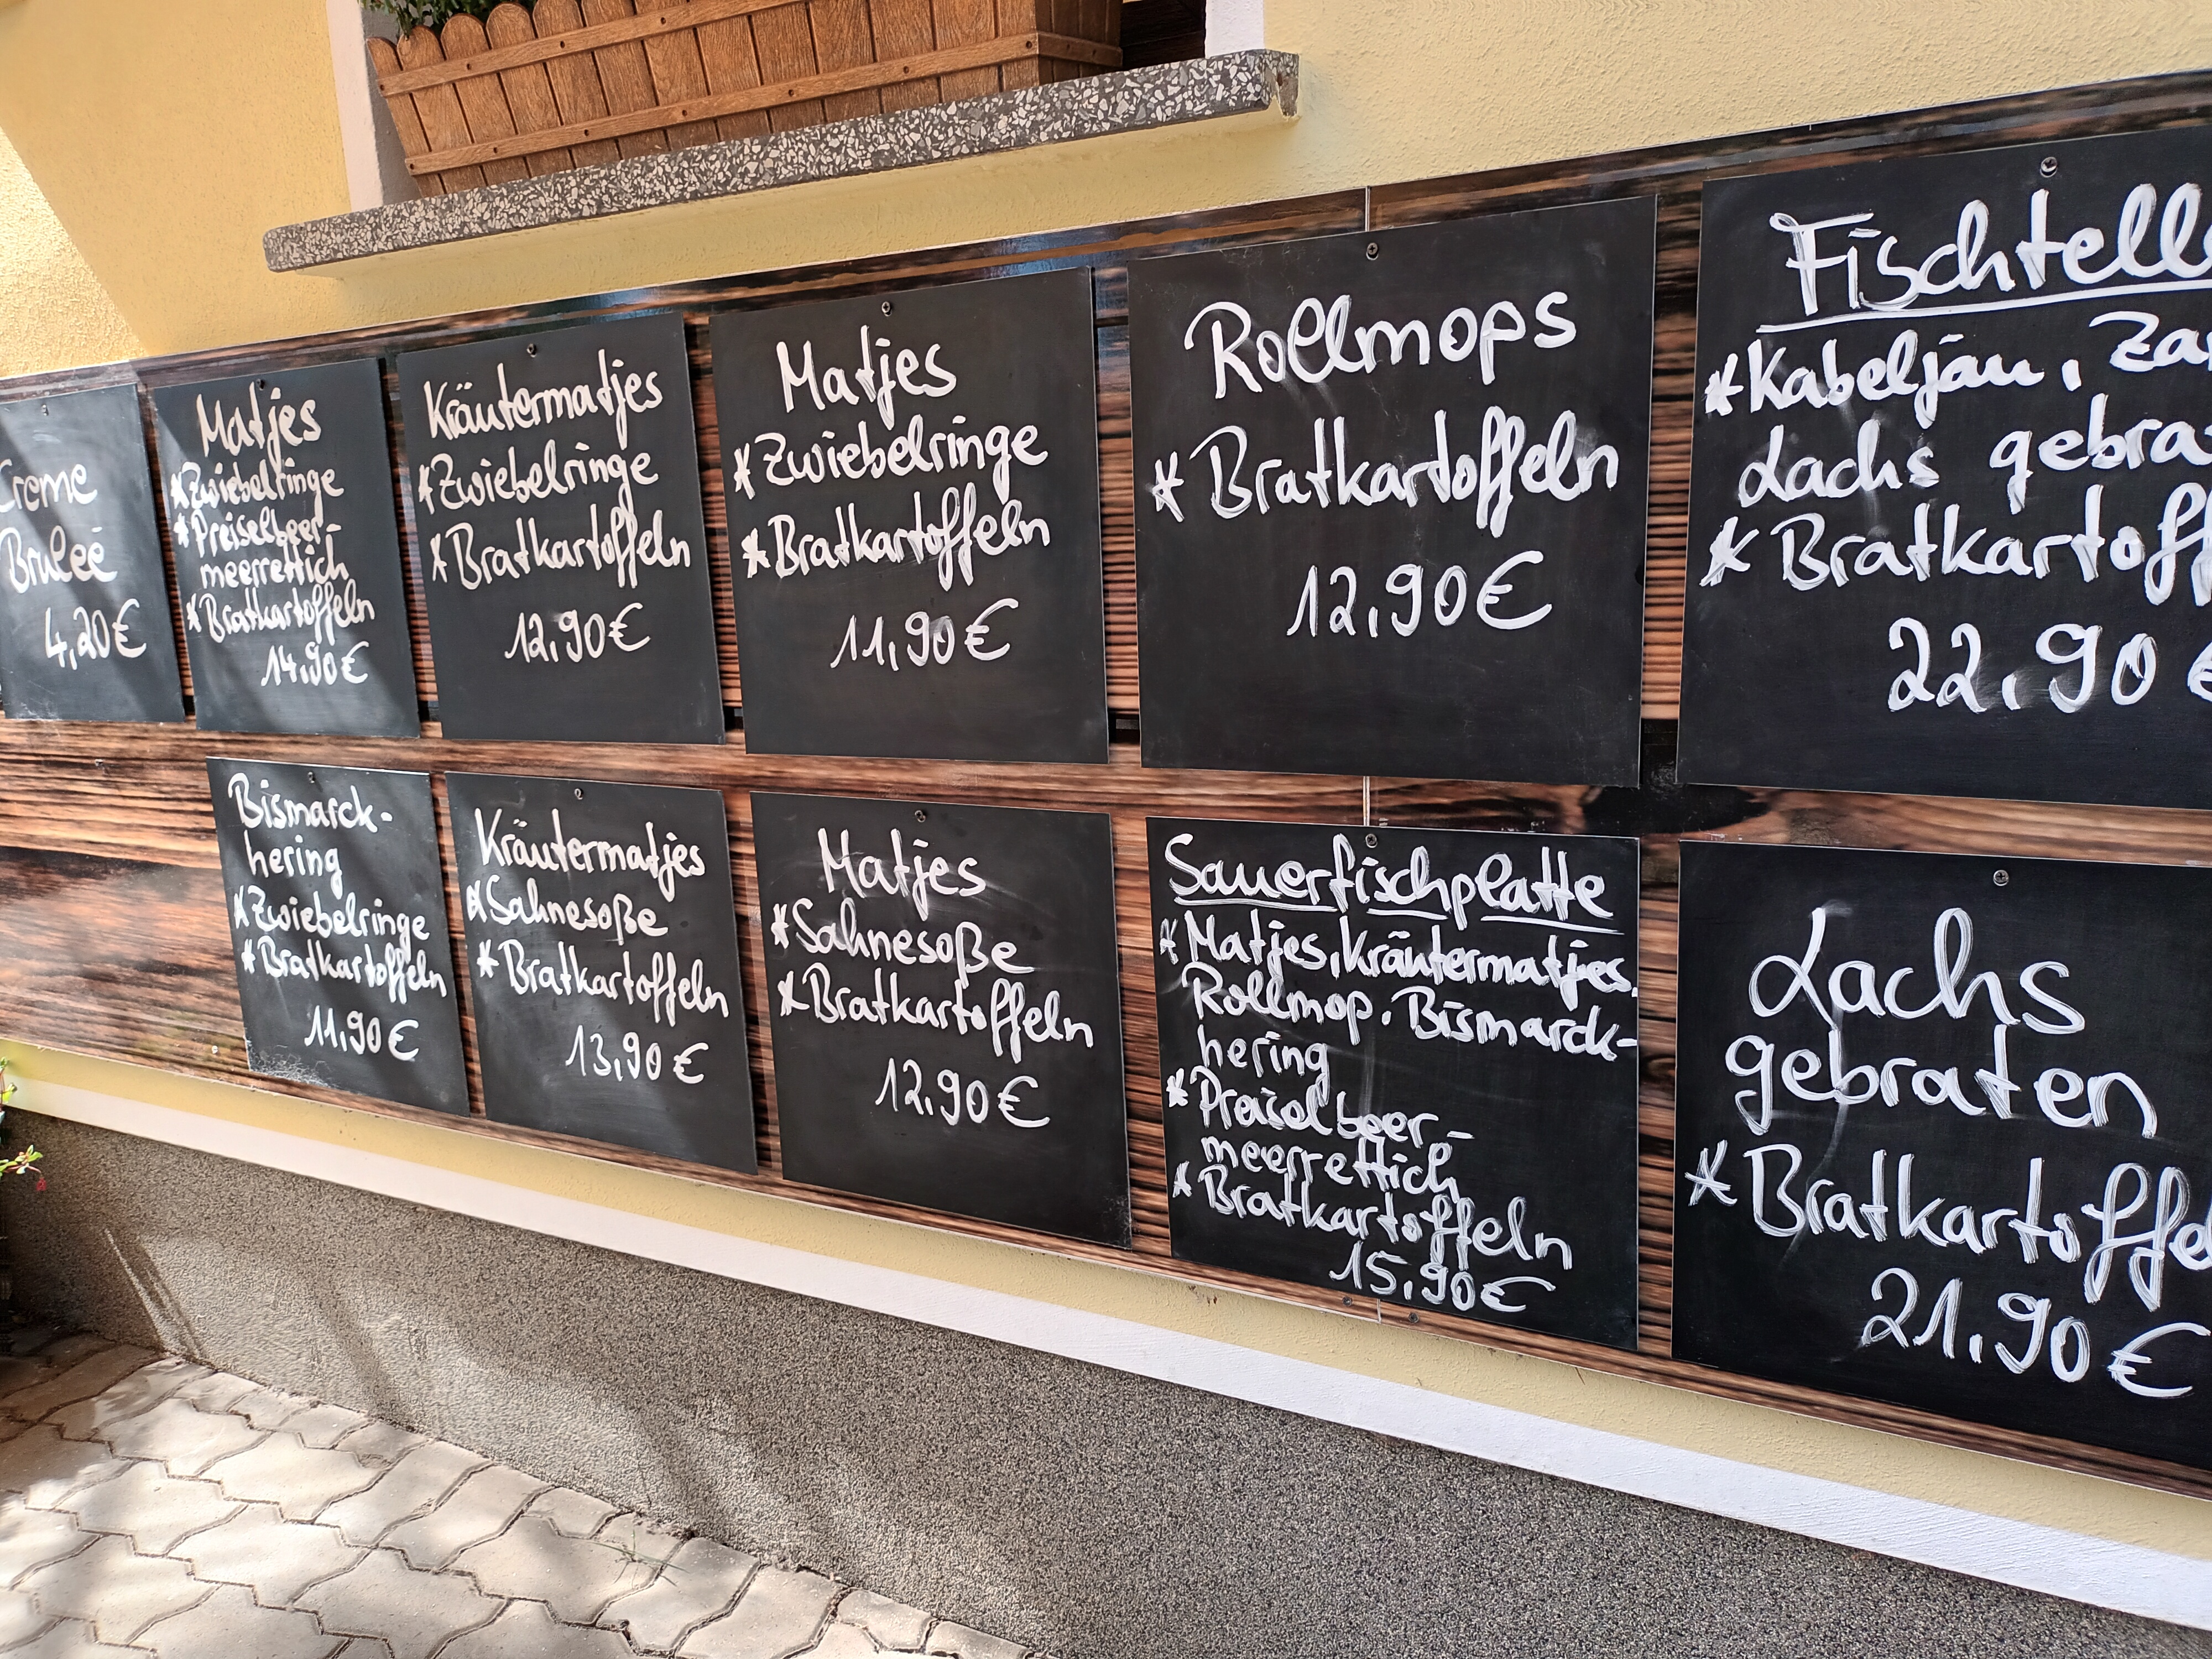 Creme
Bruleé
4,20€
Matjes
*Zwiebelringe
*Preiselbeer-
meerrettich
*Bratkartoffeln
14,90€
Kräutermatjes
*Zwiebelringe
*Bratkartoffeln
12,90€
Matjes
*Zwiebelringe
*Bratkartoffeln
11,90€
Rollmops
*Bratkartoffeln
12,90€
Fischtell
*Kabeljau, Za
Lachs gebra
*Bratkartoff
22,90€
Bismarck-
hering
*Zwiebelringe
*Bratkartoffeln
11,90€
Kräutermatjes
*Sahnesoße
*Bratkartoffeln
13,90€
Matjes
*Sahnesoße
*Bratkartoffeln
12,90€
Sauerfischplatte
*Matjes, Kräutermatjes,
Rollmop, Bismarck-
hering
*Preiselbeer-
meerrettich
*Bratkartoffeln
15,90€
Lachs
gebraten
*Bratkartoffel
21,90€